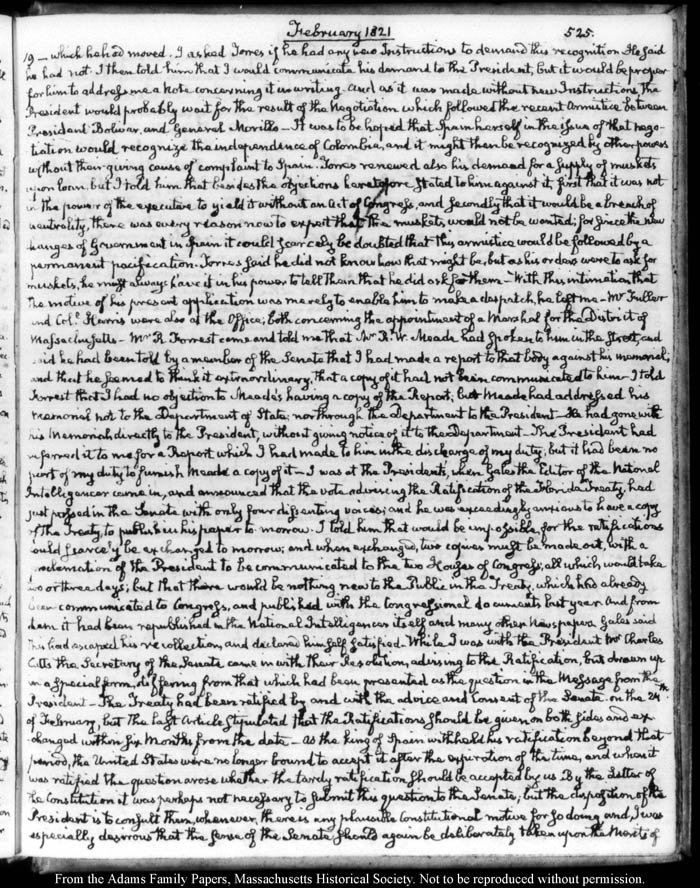 February 1821
525.
19 — which he had moved. I asked Torres if he had any new Instructions to demand this recognition He said
he had not. I then told him that I would communicate his demand to the President, but it would be proper
for him to address me a Note concerning it in writing. And as it was made without new Instructions, the
President would probably wait for the result of the Negotiation which followed the recent Armistice, between
President Bolivar, and General Morillo — It was to be hoped that Spain herself in the issue of that nego-
tiation would recognize the independence of Colombia, and it might then be recognized by other powers
without their giving cause of complaint to Spain. Torres renewed also his demand for a supply of muskets
upon loan, but I told him that besides the objections heretofore stated to him against it, first that it was not
in the power of the executive to yield it without an Act of Congress, and secondly that it would be a breach of
neutrality, there was every reason now to expect that the muskets, would not be wanted; for since the new
changes of Government in Spain it could scarcely be doubted that this armistice would be followed by a
permanent pacification. Torres said he did not know how that might be, but as his orders were to ask for
muskets, he must always have it in his power to tell them that he did ask for them — With this intimation that
the motive of his present application was merely to enable him to make a despatch, he left me — Mr Fuller
and Coll. Harris were also at the Office; both concerning the appointment of a Marshal for the District of
Massachusetts — Mr R. Forrest came and told me that Mr R. W. Meade had spoken to him in the Street, and
said he had been told by a member of the Senate that I had made a report to that body against his memorial;
and that he seemed to think it extraordinary, that a copy of it had not been communicated to him — I told
Forrest that I had no objection to Meade's having a copy of the Report, but Meade had addressed his
memorial not to the Department of State; nor through the Department to the President — He had gone with
his Memorial directly to the President, without giving notice of it to the Department — The President had
referred it to me for a Report, which I had made to him in the discharge of my duty, but it had been no
part of my duty to furnish Meade a copy of it — I was at the Presidents, when Gales the Editor of the National
Intelligencer came in, and announced that the vote advising the Ratification of the Florida Treaty, had
just passed in the Senate with only four dissenting voices; and he was exceedingly anxious to have a copy
of the Treaty, to publish in his paper to-morrow. I told him that would be impossible, for the ratifications
could scarcely be exchanged to morrow; and when exchanged, two copies must be made out, with a
proclamation of the President to be communicated to the two Houses of Congress, all which would take
two or three days; but that there would be nothing new to the Public in the Treaty, which had already
been communicated to Congress, and published with the Congressional documents last year And from
them it had been republished in the National Intelligencer itself and many other Newspapers. Gales said
this had escaped his recollection, and declared himself satisfied. While I was with the President Mr Charles
Cutts the Secretary of the Senate came in with their Resolution, advising to the Ratification, but drawn up
in a special form, differing from that which had been presented as the question in the Message from the
President — The Treaty had been ratified by and with the advice and Consent of the Senate on the 24th
of February, but the last Article stipulated that the Ratifications should be given on both sides and ex-
changed within six Months from the date — As the king of Spain withheld his ratification beyond that
period, the United States were no longer bound to accept it after the expiration of the time, and when it
was ratified the question arose whether the tardy ratification should be accepted by us. By the Letter of
the Constitution it was perhaps not necessary to submit this question to the Senate, but the disposition of the
President is to consult them, whenever there is any plausible Constitutional motive for so doing and, I was
especially desirous that the sense of the Senate, should again be deliberately taken upon the Merits of
From the Adams Family Papers, Massachusetts Historical Society. Not to be reproduced without permission.